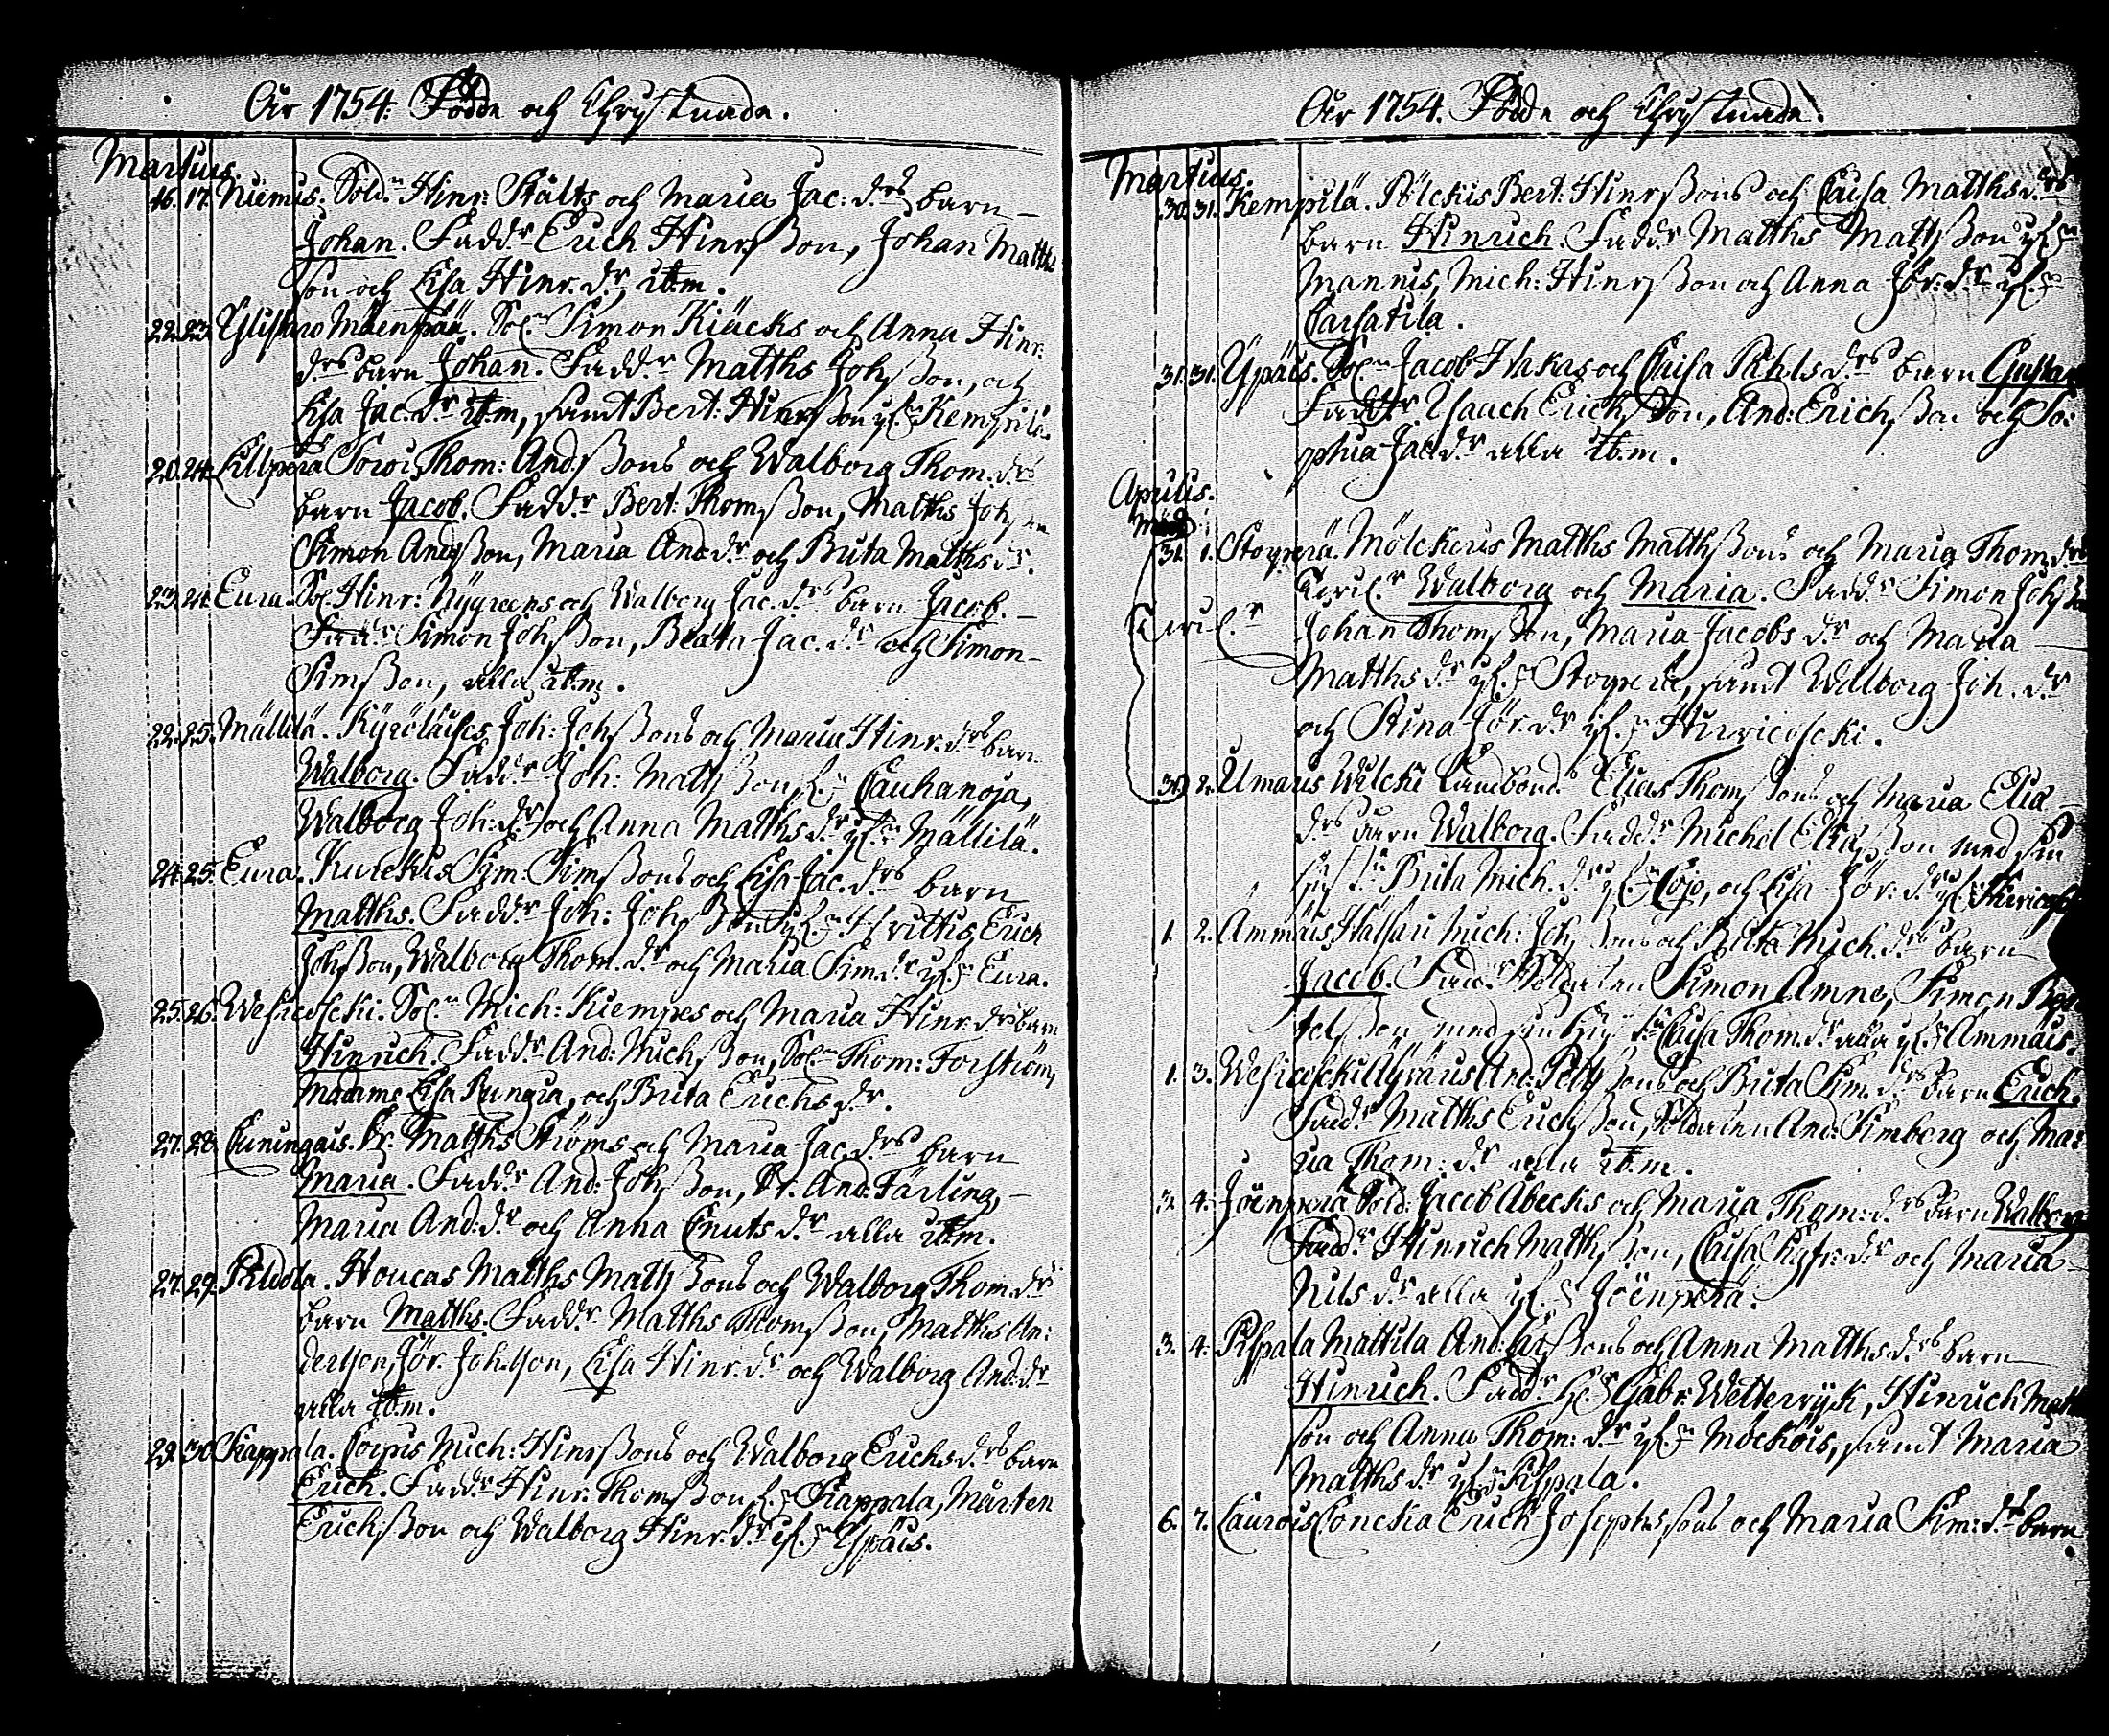 Åhr 1754. Födde och Chrystnade.
Martius.
16. 17. Niemis. Sold:n Hinr: Stålts och Maria Jac: d:rs barn
Johan. Fadd:r Erich Hinrsson, Johan Matths
son och Lisa Hinr. d:r ib:m.
22. 23. Ylistaro Mäenpää. Sol:n Simon Kiäcks och Anna Hinr:
d:rs barn Johan. Fadd:r Matths Johsson, och
Lisa Jac. d:r ib:m, samt Bert: Hinrsson if:n Kempilä.
20. 24. Lillperä Thom: Andssons och Walborg Thom: d:rs
barn Jacob. Fadd:r Bert: Thomsson, Matths Johsson
Simon Andsson, Maria And: d:r och Brita Matths d:r.
23. 24. Eura. Sol. Hinr: Nygreens och Walborg Jac. d:rs barn Jacob.
Fadd:r Simon Johsson, Beata Jac. d:r och Simon
Simsson, alla ib:m.
22. 25. Mällilä. Kyröläises Joh: Johssons och Maria Hinr. d:rs barn
Walborg. Fadd:r Joh: Mattsson if:n Cauhanoja,
Walborg Joh: d:r och Anna Matths d:r if:n Mällilä.
24. 25. Eura. Kurckis Sim: Simssons och Lisa Jac. d:rs barn
Matths. Fadd:r Joh: Johsson if:n Erich
Johsson, Walborg Thom. d:r och Maria Sim: d:r if:n Eura.
25. 26. Wesicoscki. Sol:n Mich: Kiempes och Maria Hinr. d:rs barn
Hinrich. Fadd:r And: Michsson, Sol:n Thom: Forström,
Madame Lisa Pungra, och Brita Erichs d:r.
27. 28. Cuningais. Matths Ströms och Maria Jac. d:rs barn
Maria. Fadd:r And: Johsson, And: Färling,
Maria And: d:r och Anna Cnuts d:r alla ib:m.
27. 29. Houcas Matths Mattssons och Walborg Thom. d:rs
barn Matths. Fadd:r Matths Thomsson, Matths An:
dersson, Jör. Johsson, Lisa Hinr. d:r och Walborg And: d:r
alla ib:m.
29. 30. Kappala. Mich: Hinrssons och Walborg Erichs d:rs barn
Erich. Fadd:r Hinr. Thomsson if:n Kappala, Mårten
Erichsson och Walborg Hinr. d:r if:n Ypäis.
Åhr 1754. Födde och Chrystnade.
Martius.
30. 31. Kempilä. Pölckis Bert: Hinrssons och Caisa Matths d:rs
barn Hinrich. Fadd:r Matths Mattsson if:n
Mannis, Mich: Hinrsson och Anna Jör: d:r if:n
Carsatila.
31. 31. Ypäis. Sol:n Jacob Hakas och Caisa Påhls d:rs barn Gustav
Fadd:r Isaach Erichsson, And: Erichsson och So:
phia Jac. d:r alla ib:m.
Aprilis.
31. 1. Stoyperä. Mölckeris Matths Matthssons och Maria Thom. d:rs
Twil:r Walborg och Maria. Fadd:r Simon Johsson
Twil:r
Johan Thomsson, Maria Jacobs d:r och Maria
Matths d:r if:n Stoyperä, samt Walborg Joh. d:r
och Stina Jör. d:r if:n Hirvicoscki.
30. 2. Umaris landbond: Elias Thomssons och Maria Elia
d:rs barn Walborg. Fadd:r Michel Eliasson med sin
hust:u Brita Mich. d:r if:n och Lisa Jör: d:r if:n
1. 2. Ammäis Mich: Johssons och Brita Mich. d:rs barn
Jacob. Fadd:r Soldaten Simon Amne, Simon Ber
telsson med sin hust:u Caisa Thom. d:r alla if:n Ammäis.
1. 3. Wesicoscki And: Pettssons och Brita Sim. d:rs barn Erich.
Fadd:r Matths Erichsson, Soldaten And: Simberg och Ma:
ria Thom: d:r alla ib:m.
3. 4. Jöenperä Sold: Jacob Abecks och Maria Thom: d:rs barn Walborg
Fadd:r Hinrich Matthsson, Caisa d:r och Maria
Nils d:r alla if:n Jöenperä.
3. 4. Pispala Mattila And: och Anna Matths d:rs barn
Hinrich. Fadd:r Gabr. Wetterwijk, Hinrich Matth
son och Anna Thom: d:r if:n Möckois, samt Maria
Matths d:r if:n Pispala.
6. 7. Laurois Erich Josephssons och Maria Sim: d:rs barn